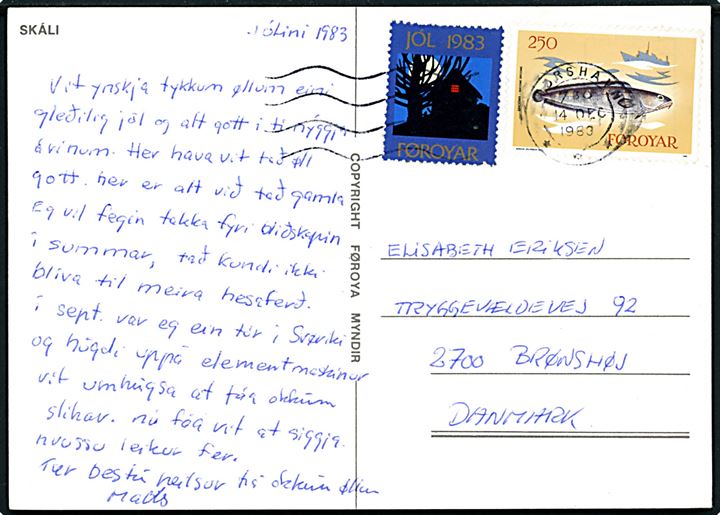 SKÁLI
Jólini 1983
Vit ynskja tykkum øllum eini
gleðilig jól og alt gott í tí nýggja
árinum. Her hava vit tað øll
gott. her er alt við tað gamla
Eg vil fegin takka fyri blídskapin
í summar, tað kundi ikki
bliva til meira hesaferð.
í sept. var eg ein túr í Svøriki
og hugdi uppá elementmaskinur
vit umhugsa at fáa okkum
slíkar. nú fáa vit at síggja
hvussu leikur fer.
Tær bestu heilsur frá okkum øllum
JÓL 1983
FØROYAR
250
TÓRSHAVN
14 DEC
1983
FØROYAR
COPYRIGHT FØROYA MYNDIR
ELISABETH ERIKSEN
TRYGGEVÆLDEVEJ 92
2700 BRØNSHØJ
DANMARK